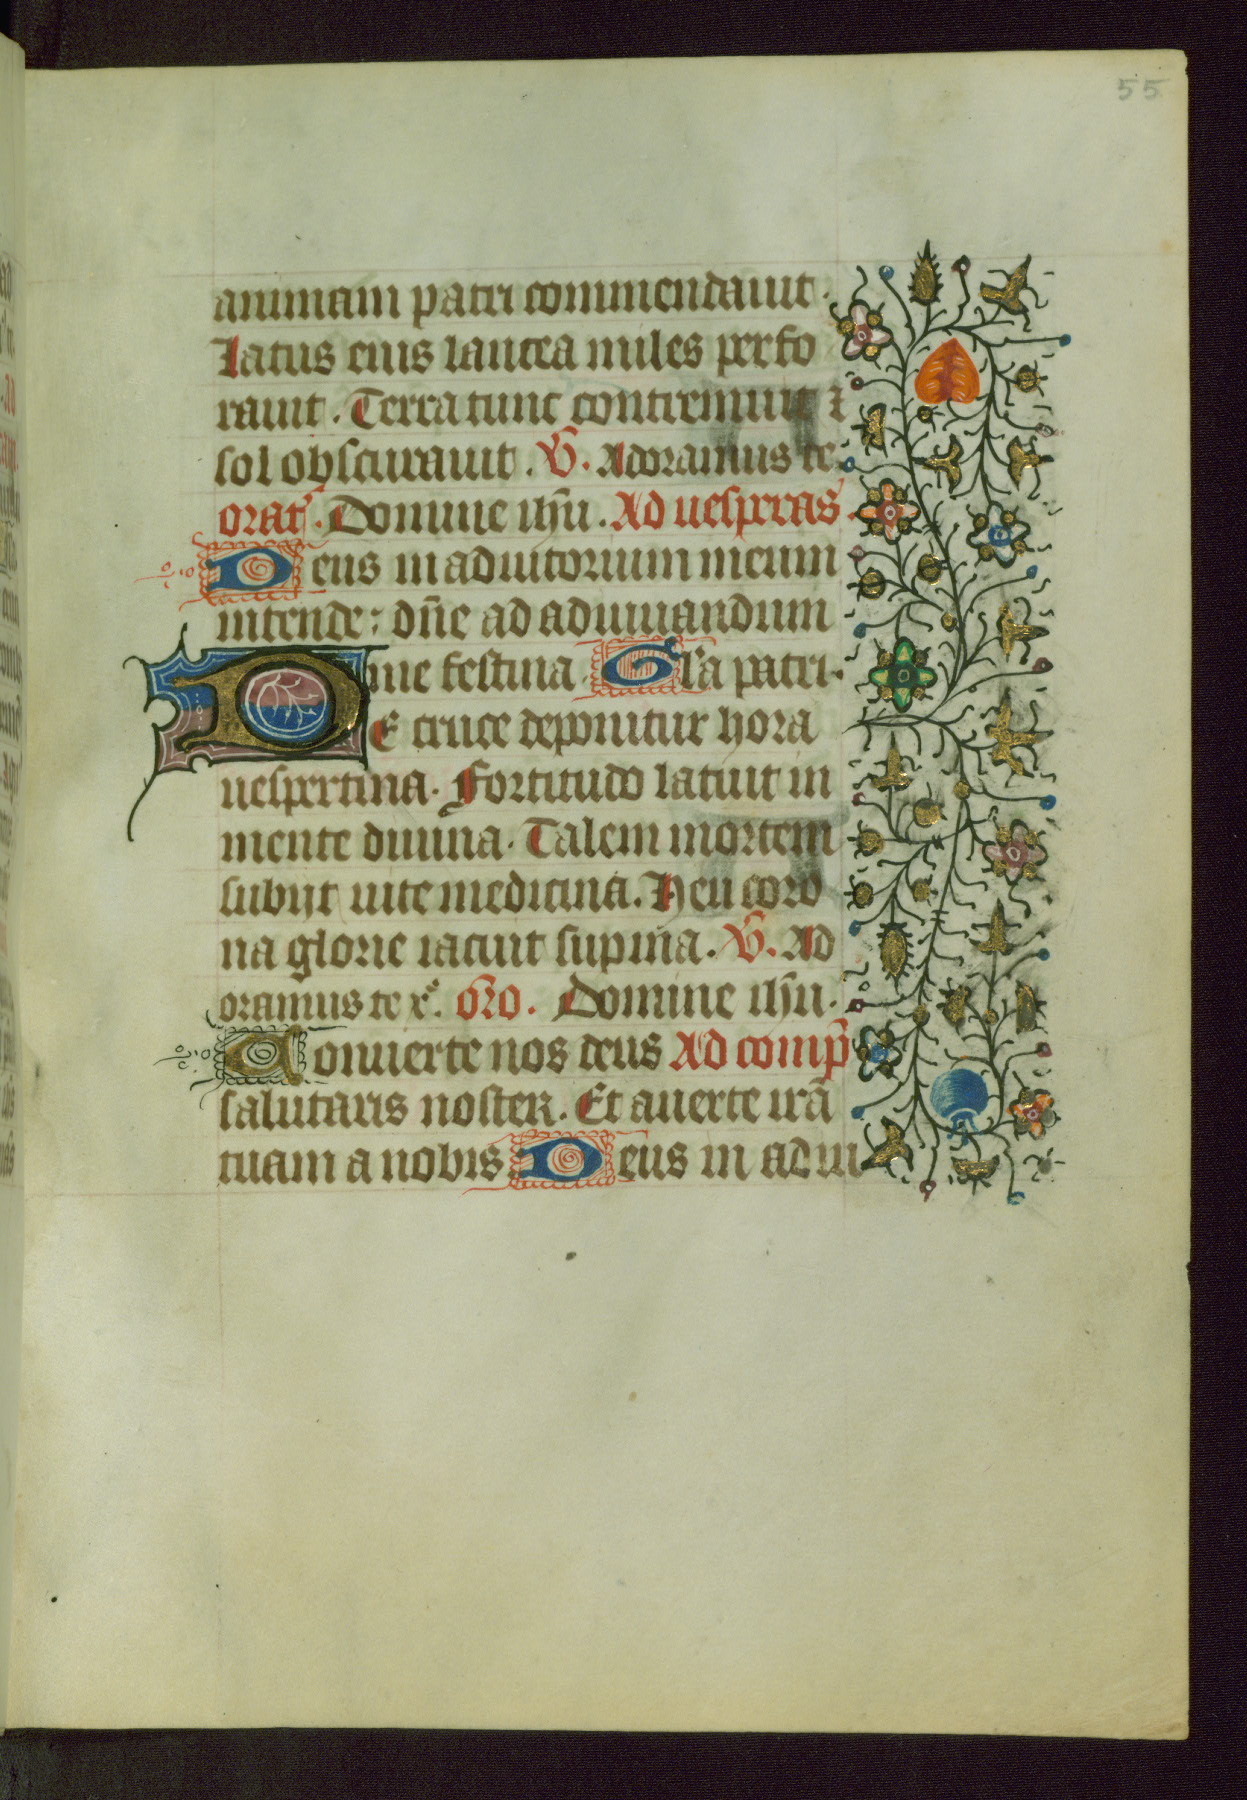 55
animam patri commendauit.
Latus eius lancea miles perfo
rauit. Terra tunc contremuit ⁊
sol obscurauit. V̄. Adoramus te.
orat̄. Domine ihū. Ad uesperas
Deus in adiutorium meum
intende: dn̄e ad adiuuandum
me festina. Gl'a patri.
DE cruce deponitur hora
uespertina. Fortitudo latuit in
mente diuina. Talem mortem
subijt uite medicina. Heu coro
na glorie iacuit supina. V̄. Ad
oramus te xe. Oro. Domine ihū.
Conuerte nos deus Ad comp̄
salutaris noster. Et auerte irā
tuam a nobis. Deus in adiu